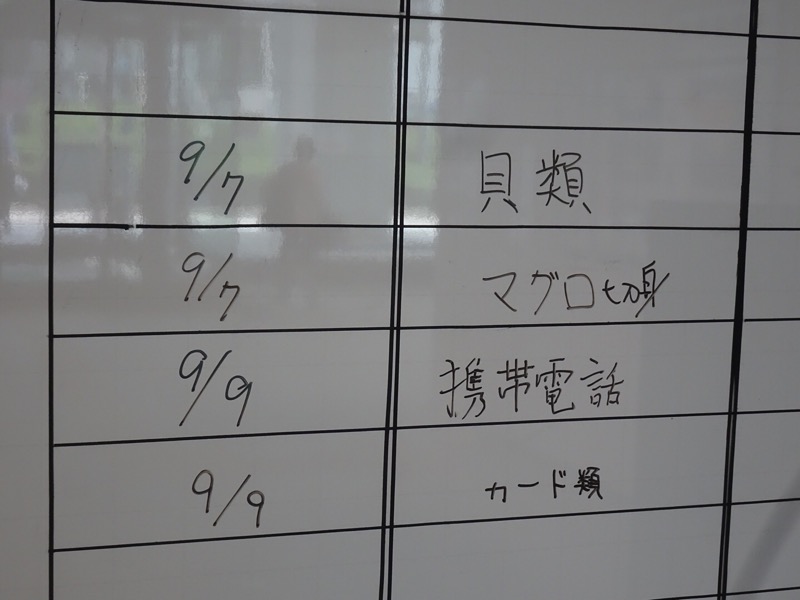 9/7 貝類
9/7 マグロ切身
9/9 携帯電話
9/9 カード類